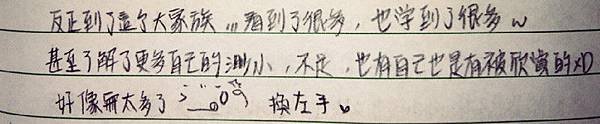 反正到了這个大家族,,,看到了很多，也学到了很多 w
甚至了解了更多自己的渺小，不足，也有自己也是有被欣賞的XD
好像廢太多了 換左手。